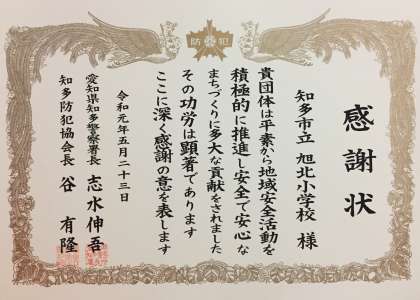 防犯
感謝状
知多市立 旭北小学校 様
貴団体は平素から地域安全活動を
積極的に推進し安全で安心な
まちづくりに多大な貢献をされました
その功労は顕著であります
ここに深く感謝の意を表します
令和元年五月二十三日
愛知県知多警察署長 志水伸吾
知多防犯協会長 谷 有隆